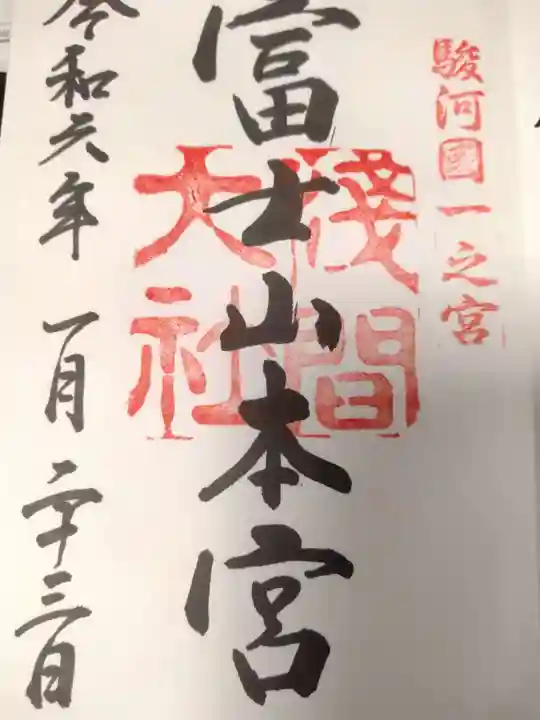 駿河國一之宮
富士山本宮
淺間大社
令和六年 一月二十三日